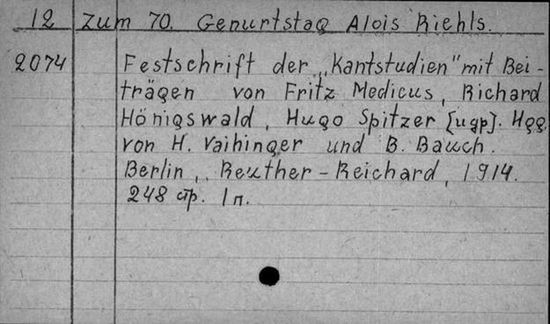 12 Zum 70. Genurtstag Alois Riehls.
2074 Festschrift der „Kantstudien" mit Bei-
trägen von Fritz Medicus, Richard
Hönigswald, Hugo Spitzer [идр]. Hgg.
von H. Vaihinger und B. Bauch.
Berlin, Reuther-Reichard, 1914.
248 стр. 1 л.